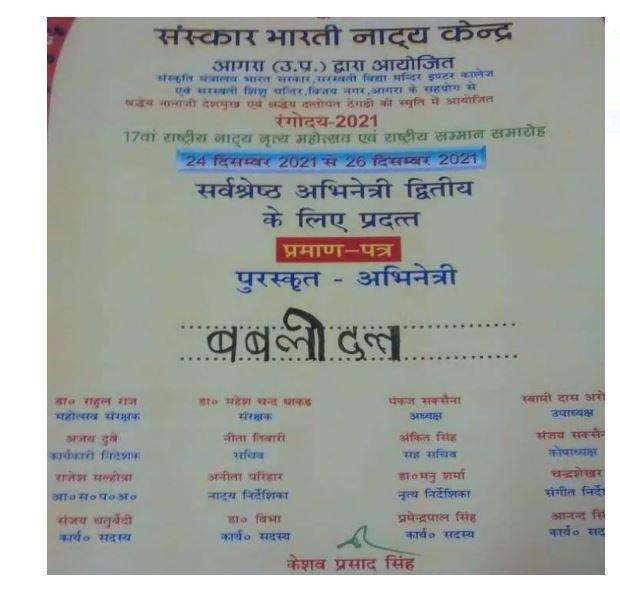 संस्कार भारती नाट्य केन्द्र
आगरा (उ.प्र.) द्वारा आयोजित
संस्कृति मंत्रालय भारत सरकार,सरस्वती विद्या मन्दिर इण्टर कालेज
एवं सरस्वती शिशु मन्दिर,विजय नगर,आगरा के सहयोग से
श्रद्धेय नानाजी देशमुख एवं श्रद्धेय दत्तोपंत ठेंगडी की स्मृति में आयोजित
रंगोदय-2021
17वां राष्ट्रीय नाट्य नृत्य महोत्सव एवं राष्ट्रीय सम्मान समारोह
24 दिसम्बर 2021 से 26 दिसम्बर 2021
सर्वश्रेष्ठ अभिनेत्री द्वितीय
के लिए प्रदत्त
प्रमाण-पत्र
पुरस्कृत - अभिनेत्री
बबली दत्त
डा० राहुल राज डा० महेश चन्द धाकड़ पंकज सक्सैना स्वामी दास
महोत्सव संरक्षक संरक्षक अध्यक्ष उपाध्यक्ष
अजय दुबे नीता तिवारी अंकित सिंह संजय
कार्यकारी निदेशक सचिव सह सचिव कोषाध्यक्ष
राजेश मल्होत्रा अनीता परिहार डा०मनु शर्मा चन्द्रशेखर
आ०स०प०अ० नाट्य निर्देशिका नृत्य निर्देशिका संगीत
संजय चतुर्वेदी डा० विभा प्रमेन्द्रपाल सिंह आनन्द
कार्य० सदस्य कार्य० सदस्य कार्य० सदस्य कार्य०
केशव प्रसाद सिंह